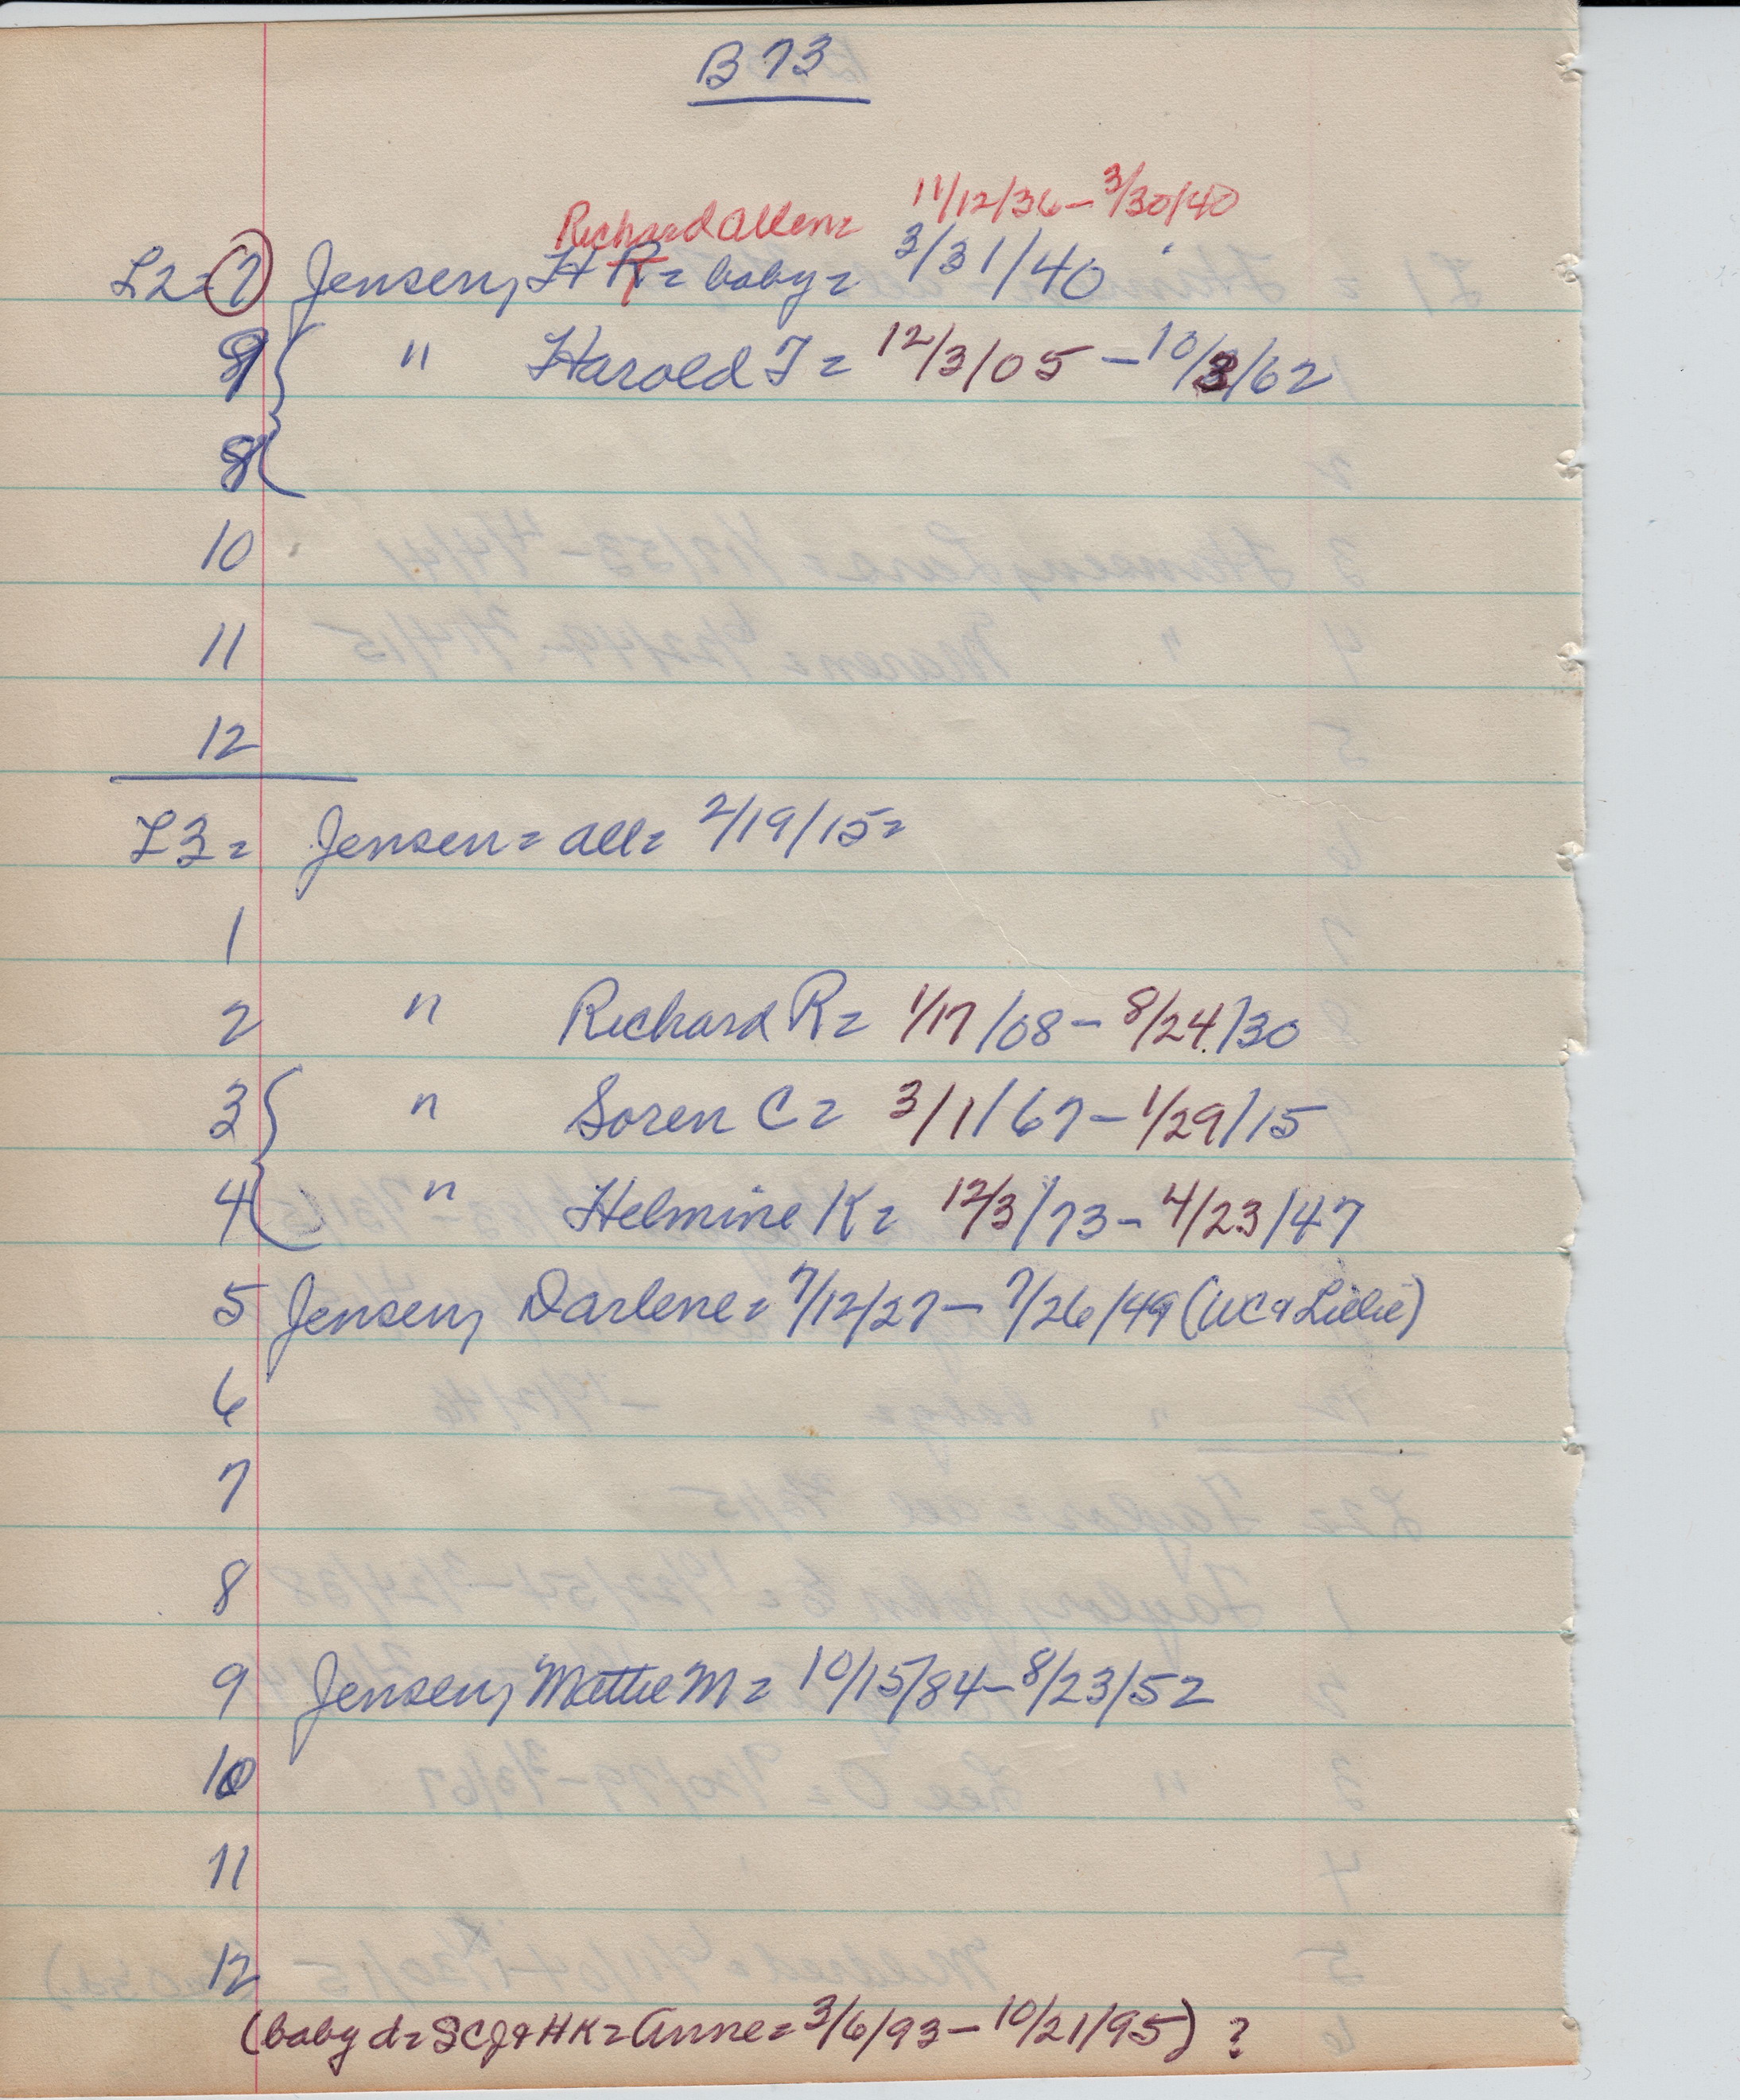 B 73
Richard Allen= 11/12/36-3/30/40
L2=7 Jensen, H R= baby= 3/31/40
9 " Harold T= 12/3/05-10/3/62
8
10
11
12
L3= Jensen= all= 2/19/15=
1
2 " Richard R= 1/17/08-8/24/30
3 " Soren C= 3/1/67-1/29/15
4 " Helmine K= 12/3/73-4/23/47
5 Jensen, Darlene= 7/12/27-7/26/49 (WC & Lillie)
6
7
8
9 Jensen, Mattie M= 10/15/84-8/23/52
10
11
12
(baby d= SCJ & HK= Anne= 3/6/93-10/21/95) ?